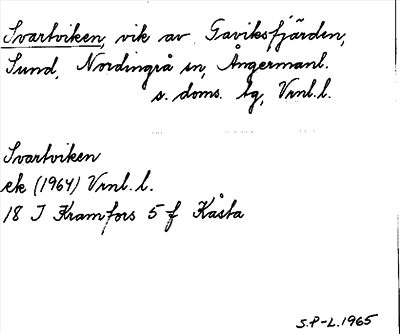 Svartviken, vik av Gaviksfjärden,
Sund, Nordingrå sn, Ångermanl.
s. doms. tg, Vrnl. l.
Svartviken
ek (1964) Vrnl. l.
18 I Kramfors 5 f Kåsta
S.P-L. 1965